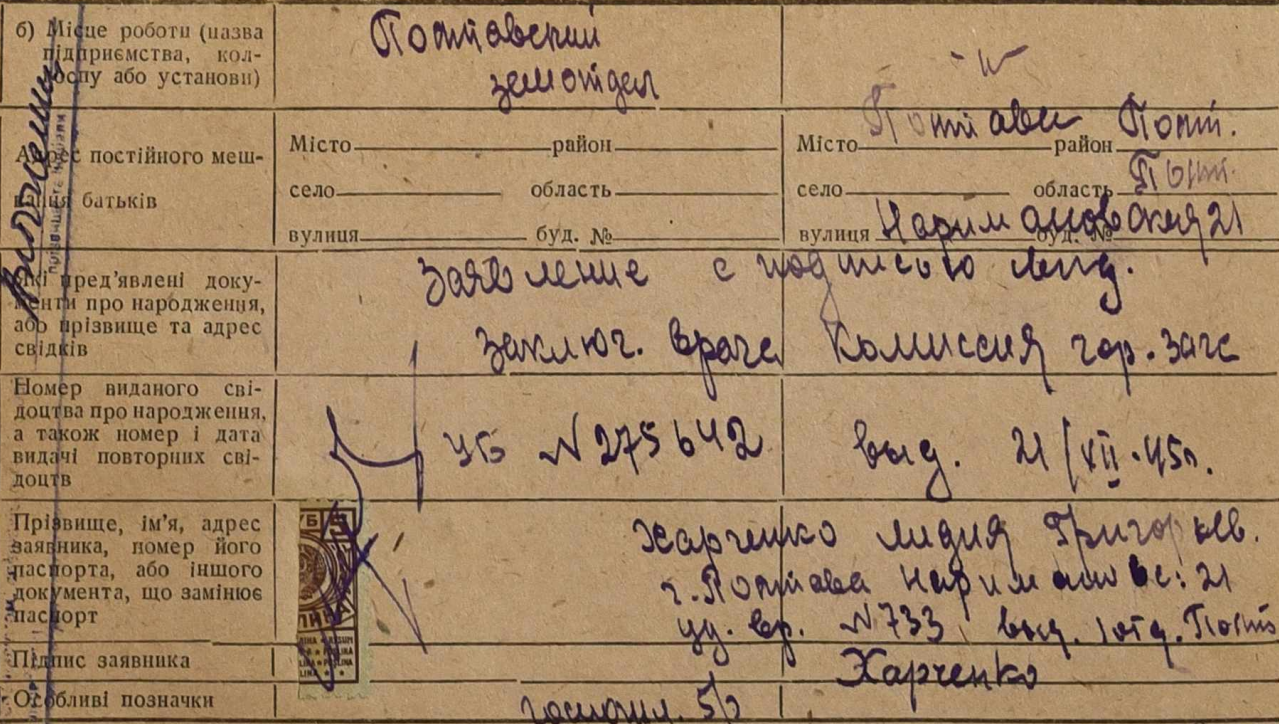 б) Місце роботи (назва
підприємства, кол-
госпу або установи)
Полтавский
земотдел
- „ -
Адрес постійного меш-
кання батьків
Місто район
село область
вулиця буд. №
Місто Полтава район Полт.
село область Полт.
вулиця Наримановская буд. № 21
Які пред’явлені доку-
менти про народження,
або прізвище та адрес
свідків
Заявление с подписью
заключ. врача Комиссия гор. загс
Номер виданого сві-
доцтва про народження,
а також номер і дата
видачі повторних сві-
доцтв
УБ №275642 выд. 21/XII-45г.
Прізвище, ім’я, адрес
заявника, номер його
паспорта, або іншого
документа, що замінює
паспорт
Харченко Лидия Григорьев.
г. Полтава Наримановс: 21
уд. вр. №733 выд. 1 отд. Полт
Підпис заявника
Харченко
Особливі позначки